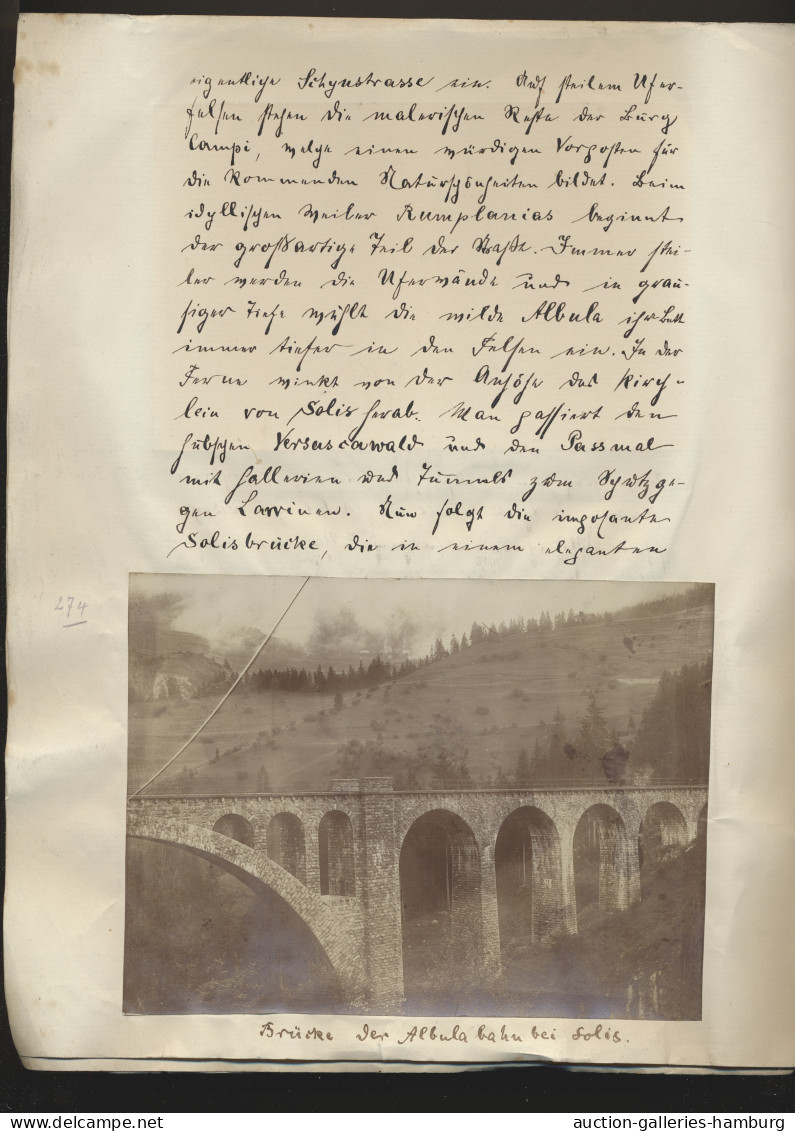 eigentliche Schynstrasse ein. Auf steilem Ufer-
felsen stehen die malerischen Reste der Burg
Campi, welche einen würdigen Vorposten für
die kommenden Naturschönheiten bildet. Beim
idyllischen Weiler Rumplanias beginnt
der großartige Teil der Straße. Immer stei-
ler werden die Uferwände und in grau-
siger Tiefe wühlt die wilde Albula ihr Bett
immer tiefer in den Felsen ein. In der
Ferne winkt von der Anhöhe das Kirch-
lein von Solis herab. Man passiert den
hübschen Versascawald und den Passmal
mit Gallerien und Tunnels zum Schutz ge-
gen Lawinen. Nun folgt die imposante
Solisbrücke, die in einem eleganten
274
Brücke der Albulabahn bei Solis.
auction-galleries-hamburg